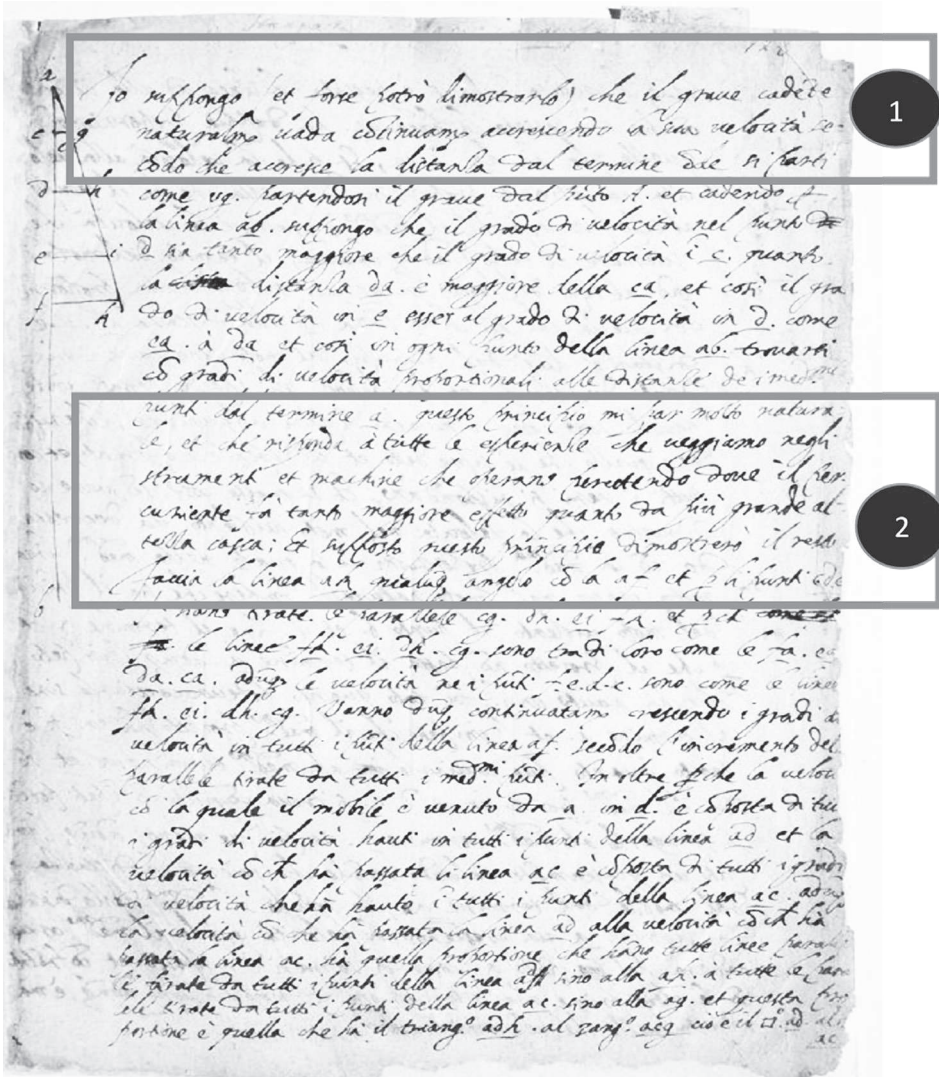 128
a
Io suppongo (et forse potrò dimostrarlo) che il grave cadēte
1
c g naturalmº vada cōtinuamº accrescendo la sua velocità se-
cōdo che accresce la distanza dal termine ōde si partì
d h come vg. partendosi il grave dal pūto a. et cadendo p
la linea ab. suppongo che il grado di velocità nel punto
e i d sia tanto maggiore che il grado di velocità ī c. quanto
la distanza da. è maggiore della ca. et così il gra
f k do di velocità in e esser al grado di velocità in d. come
ea. à da et così in ogni punto della linea ab. trovarsi
cō gradi di velocità proportionali alle distanze de i medmi
punti dal termine a. questo principio mi par molto natura
le, et che risponda à tutte le esperienze che veggiamo negli
strumenti et machine che operano percotendo dove il per
cuziente fà tanto maggiore effetto quanto da più grande al-
2
tezza casca; Et supposto questo principio dimostrerò il resto
Faccia la linea ak qualūq angolo cō la af et p li punti c.d.e
b tirate le parallele cg. dh. ei. fk. et pch
le linee fk. ei. dh. cg. sono tra di loro come le fa. ea
da. ca. adūq le velocità ne i pūti f.e.d.c. sono come le linee
fk. ei. dh. cg. Vanno dūq continuatamº crescendo i gradi di
velocità in tutti i pūti della linea af. secōdo l'incremento delle
parallele tirate da tutti i medmi pūti. In oltre pche la velocità
cō la quale il mobile è venuto da a. in d. è cōposta di tutti
i gradi di velocità hauti in tutti i punti della linea ad et la
velocità cō ch hà passata la linea ac è cōposta di tutti i gradi
di velocità che hà hauto ī tutti i punti della linea ac. adūq
la velocità cō che hà passata la linea ad alla velocità cō ch hà
passata la linea ac. hà quella proportione che hāno tutte linee paral
tirate da tutti i punti della linea ad sino alla ah. à tutte le paral
lele tirate da tutti i punti della linea ac. sino alla ag. et questa pro
portione è quella che hà il triangº adh. al ƶangº acg cioè il □º ad al
ac